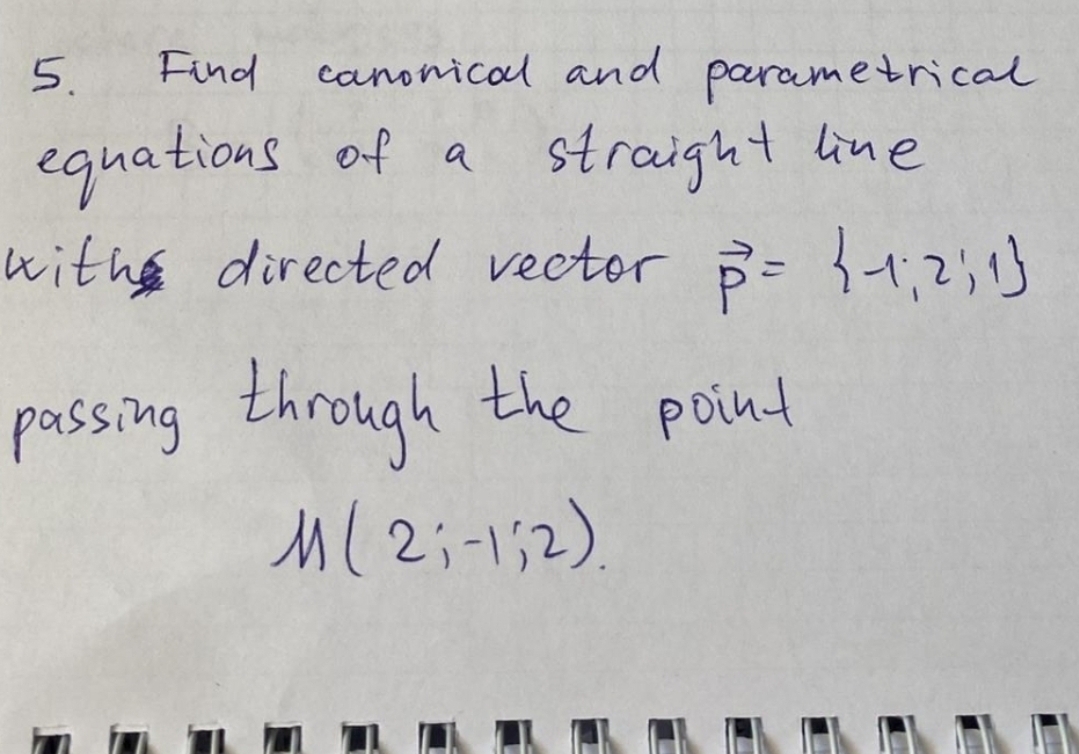 5. Find canonical and parametrical
equations of a straight line
with directed vector p⃗ = {-1; 2; 1}
passing through the point
M( 2; -1; 2).